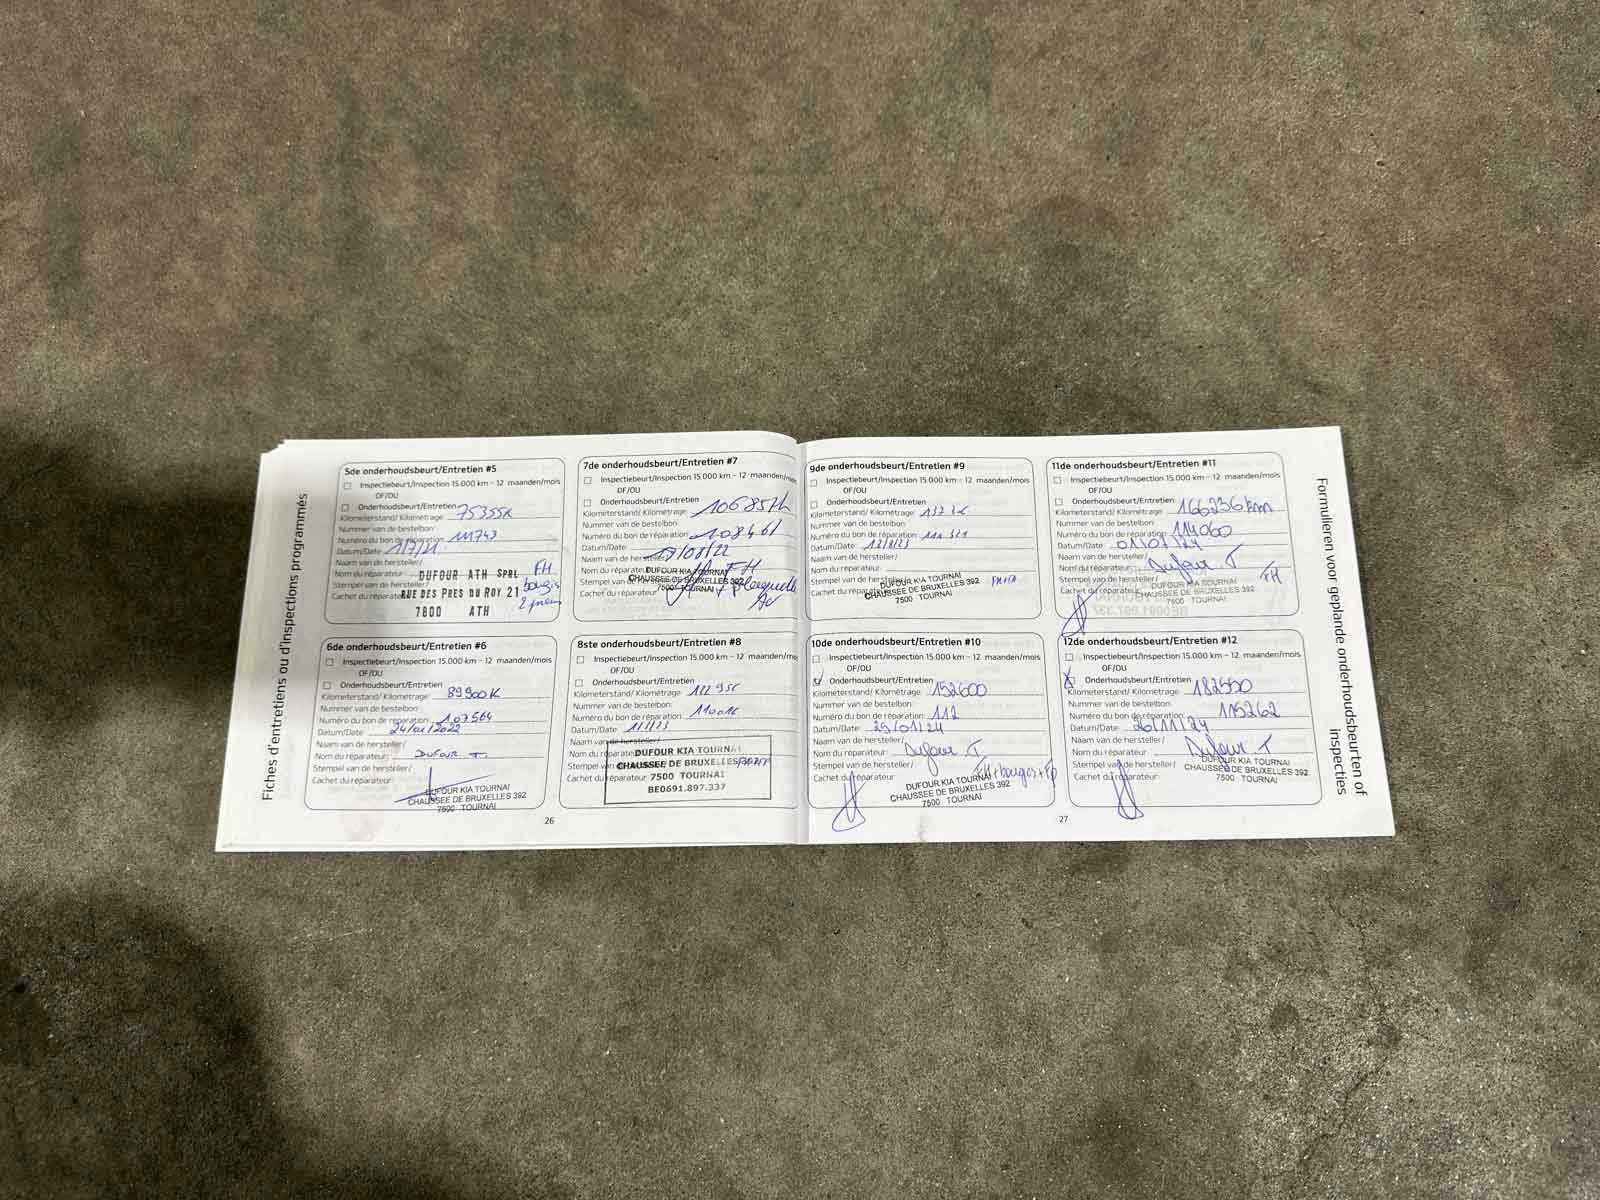 Fiches d'entretiens ou d'inspections programmés
5de onderhoudsbeurt/Entretien #5
Inspectiebeurt/Inspection 15.000 km – 12 maanden/mois
OF/OU
Onderhoudsbeurt/Entretien
Kilometerstand/ Kilométrage: 75355k
Nummer van de bestelbon:
Numéro du bon de réparation: 111743
Datum/Date: 1/7/21
Naam van de hersteller/
Nom du réparateur:
FH
Stempel van de hersteller/
bougis
Cachet du réparateur:
DUFOUR ATH SPRL
RUE DES PRES DU ROY 21
7800 ATH
6de onderhoudsbeurt/Entretien #6
Inspectiebeurt/Inspection 15.000 km – 12 maanden/mois
OF/OU
Onderhoudsbeurt/Entretien
Kilometerstand/ Kilométrage: 89900k
Nummer van de bestelbon:
Numéro du bon de réparation: 107564
Datum/Date: 24/01/2022
Naam van de hersteller/
Nom du réparateur: DUFOUR T.
Stempel van de hersteller/
Cachet du réparateur:
DUFOUR KIA TOURNAI
CHAUSSEE DE BRUXELLES 392
7500 TOURNAI
7de onderhoudsbeurt/Entretien #7
Inspectiebeurt/Inspection 15.000 km – 12 maanden/mois
OF/OU
Onderhoudsbeurt/Entretien
Kilometerstand/ Kilométrage:
Nummer van de bestelbon:
Numéro du bon de réparation: 108461
Datum/Date: /08/22
Naam van de hersteller/
Nom du réparateur: FH
Stempel van de
Cachet du réparateur:
DUFOUR KIA TOURNAI
CHAUSSEE DE BRUXELLES 392
7500 TOURNAI
8ste onderhoudsbeurt/Entretien #8
Inspectiebeurt/Inspection 15.000 km – 12 maanden/mois
OF/OU
Onderhoudsbeurt/Entretien
Kilometerstand/ Kilométrage:
Nummer van de bestelbon:
Numéro du bon de réparation:
Datum/Date:
Naam van de hersteller/
Nom du réparateur:
Stempel van
Cachet du réparateur:
DUFOUR KIA TOURNAI
CHAUSSEE DE BRUXELLES
7500 TOURNAI
BE0691.897.337
26
9de onderhoudsbeurt/Entretien #9
Inspectiebeurt/Inspection 15.000 km – 12 maanden/mois
OF/OU
Onderhoudsbeurt/Entretien
Kilometerstand/ Kilométrage:
Nummer van de bestelbon:
Numéro du bon de réparation:
Datum/Date:
Naam van de hersteller/
Nom du réparateur:
Stempel van de hersteller/
Cachet du réparateur:
DUFOUR KIA TOURNAI
CHAUSSEE DE BRUXELLES 392
7500 TOURNAI
10de onderhoudsbeurt/Entretien #10
Inspectiebeurt/Inspection 15.000 km – 12 maanden/mois
OF/OU
Onderhoudsbeurt/Entretien
Kilometerstand/ Kilométrage: 152600
Nummer van de bestelbon:
Numéro du bon de réparation: 112
Datum/Date: 25/01/24
Naam van de hersteller/
Nom du réparateur: Dufour T
Stempel van de hersteller/
Cachet du réparateur: FH+bougies+Fp
DUFOUR KIA TOURNAI
CHAUSSEE DE BRUXELLES 392
7500 TOURNAI
11de onderhoudsbeurt/Entretien #11
Inspectiebeurt/Inspection 15.000 km – 12 maanden/mois
OF/OU
Onderhoudsbeurt/Entretien
Kilometerstand/ Kilométrage: 166236km
Nummer van de bestelbon:
Numéro du bon de réparation: 114060
Datum/Date: 01/07/24
Naam van de hersteller/
Nom du réparateur: Dufour T
Stempel van de hersteller/ FH
Cachet du réparateur:
DUFOUR KIA TOURNAI
CHAUSSEE DE BRUXELLES 392
7500 TOURNAI
12de onderhoudsbeurt/Entretien #12
Inspectiebeurt/Inspection 15.000 km – 12 maanden/mois
OF/OU
Onderhoudsbeurt/Entretien
Kilometerstand/ Kilométrage:
Nummer van de bestelbon:
Numéro du bon de réparation: 115262
Datum/Date: 26/11/24
Naam van de hersteller/
Nom du réparateur: Dufour T
Stempel van de hersteller/
Cachet du réparateur:
DUFOUR KIA TOURNAI
CHAUSSEE DE BRUXELLES 392
7500 TOURNAI
27
Formulieren voor geplande onderhoudsbeurten of
inspecties